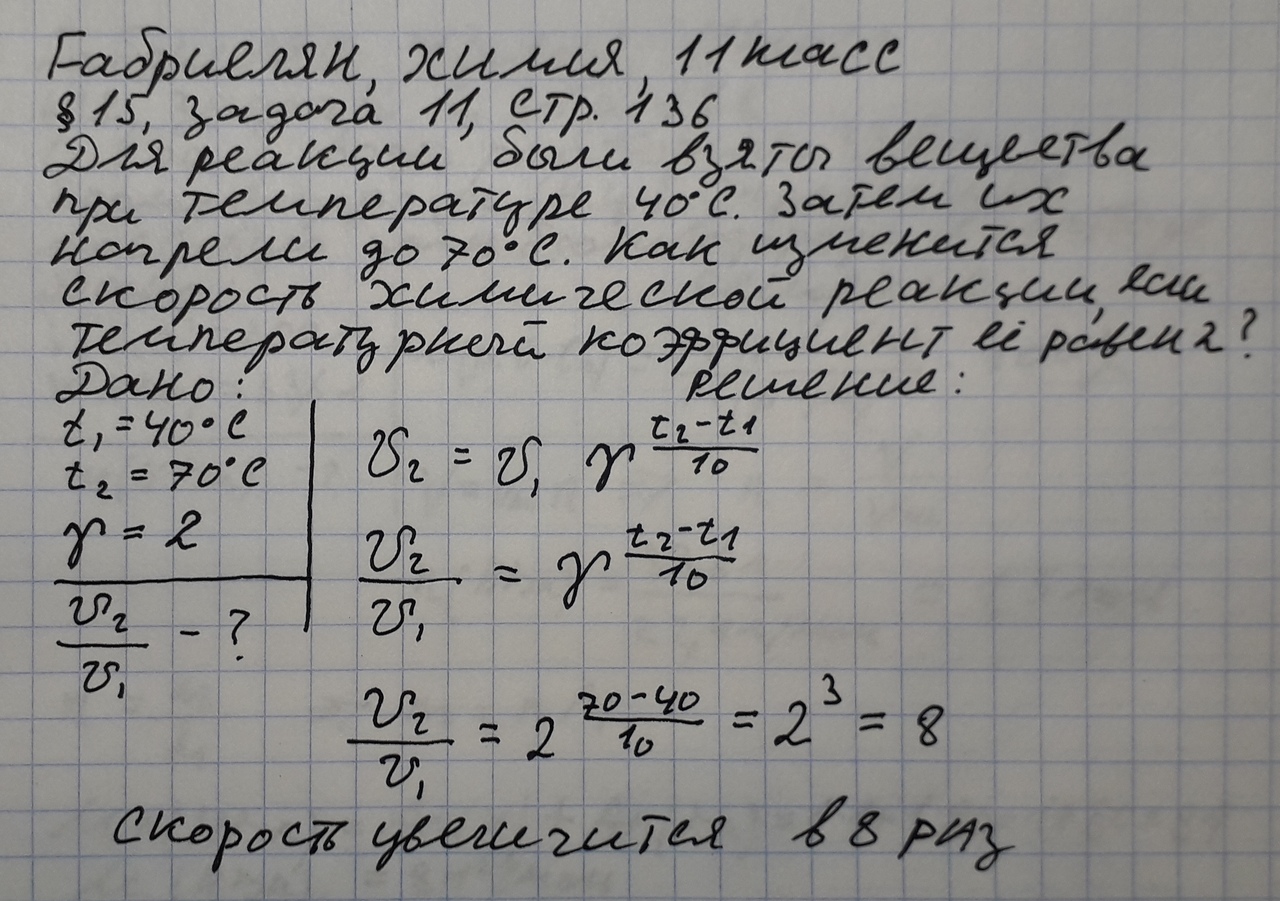 Габриелян, химия, 11 класс
§ 15, задача 11, стр. 136
Для реакции были взяты вещества
при температуре 40°С. Затем их
нагрели до 70°С. Как изменится
скорость химической реакции, если
температурный коэффициент её равен 2?
Дано:
t₁ = 40°С
t₂ = 70°С
γ = 2
v₂/v₁ - ?
Решение:
v₂ = v₁ γ^((t₂-t₁)/10)
v₂/v₁ = γ^((t₂-t₁)/10)
v₂/v₁ = 2^((70-40)/10) = 2³ = 8
Скорость увеличится в 8 раз